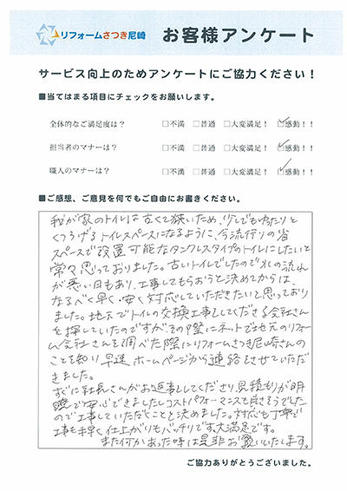 リフォームさつき尼崎 お客様アンケート
サービス向上のためアンケートにご協力ください！
■当てはまる項目にチェックをお願いします。
全体的なご満足度は？ □不満 □普通 □大変満足！ ☑感動！！
担当者のマナーは？ □不満 □普通 □大変満足！ ☑感動！！
職人のマナーは？ □不満 □普通 □大変満足！ ☑感動！！
■ご感想、ご意見を何でもご自由にお書きください。
我が家のトイレは古くて狭いため、少しでもゆったりと
くつろげるトイレスペースになるように、今流行りの省
スペースで設置可能なタンクレスタイプのトイレにしたいと
常々思っておりました。古いトイレでしたので水の流れ
が悪い日もあり、工事してもらおうと決めてからは、
なるべく早く・安く対応していただきたいと思っており
ました。地元でトイレの交換工事をしてくださる会社さん
を探していたのですがその際にネットで地元のリフォ
ーム会社さんを調べた際にリフォームさつき尼崎さんの
ことを知り早速、ホームページから連絡をさせていただ
きました。
すぐに社長さんがお返事をしてくださり、見積もりが明
瞭で安心できましたしコストパフォーマンスも良さそうでした
ので工事していただくことを決めました。対応も丁寧で
工事も早く仕上がりもバッチリです。大満足です。
また何かあった時は是非お願いいたします。
ご協力ありがとうございました。